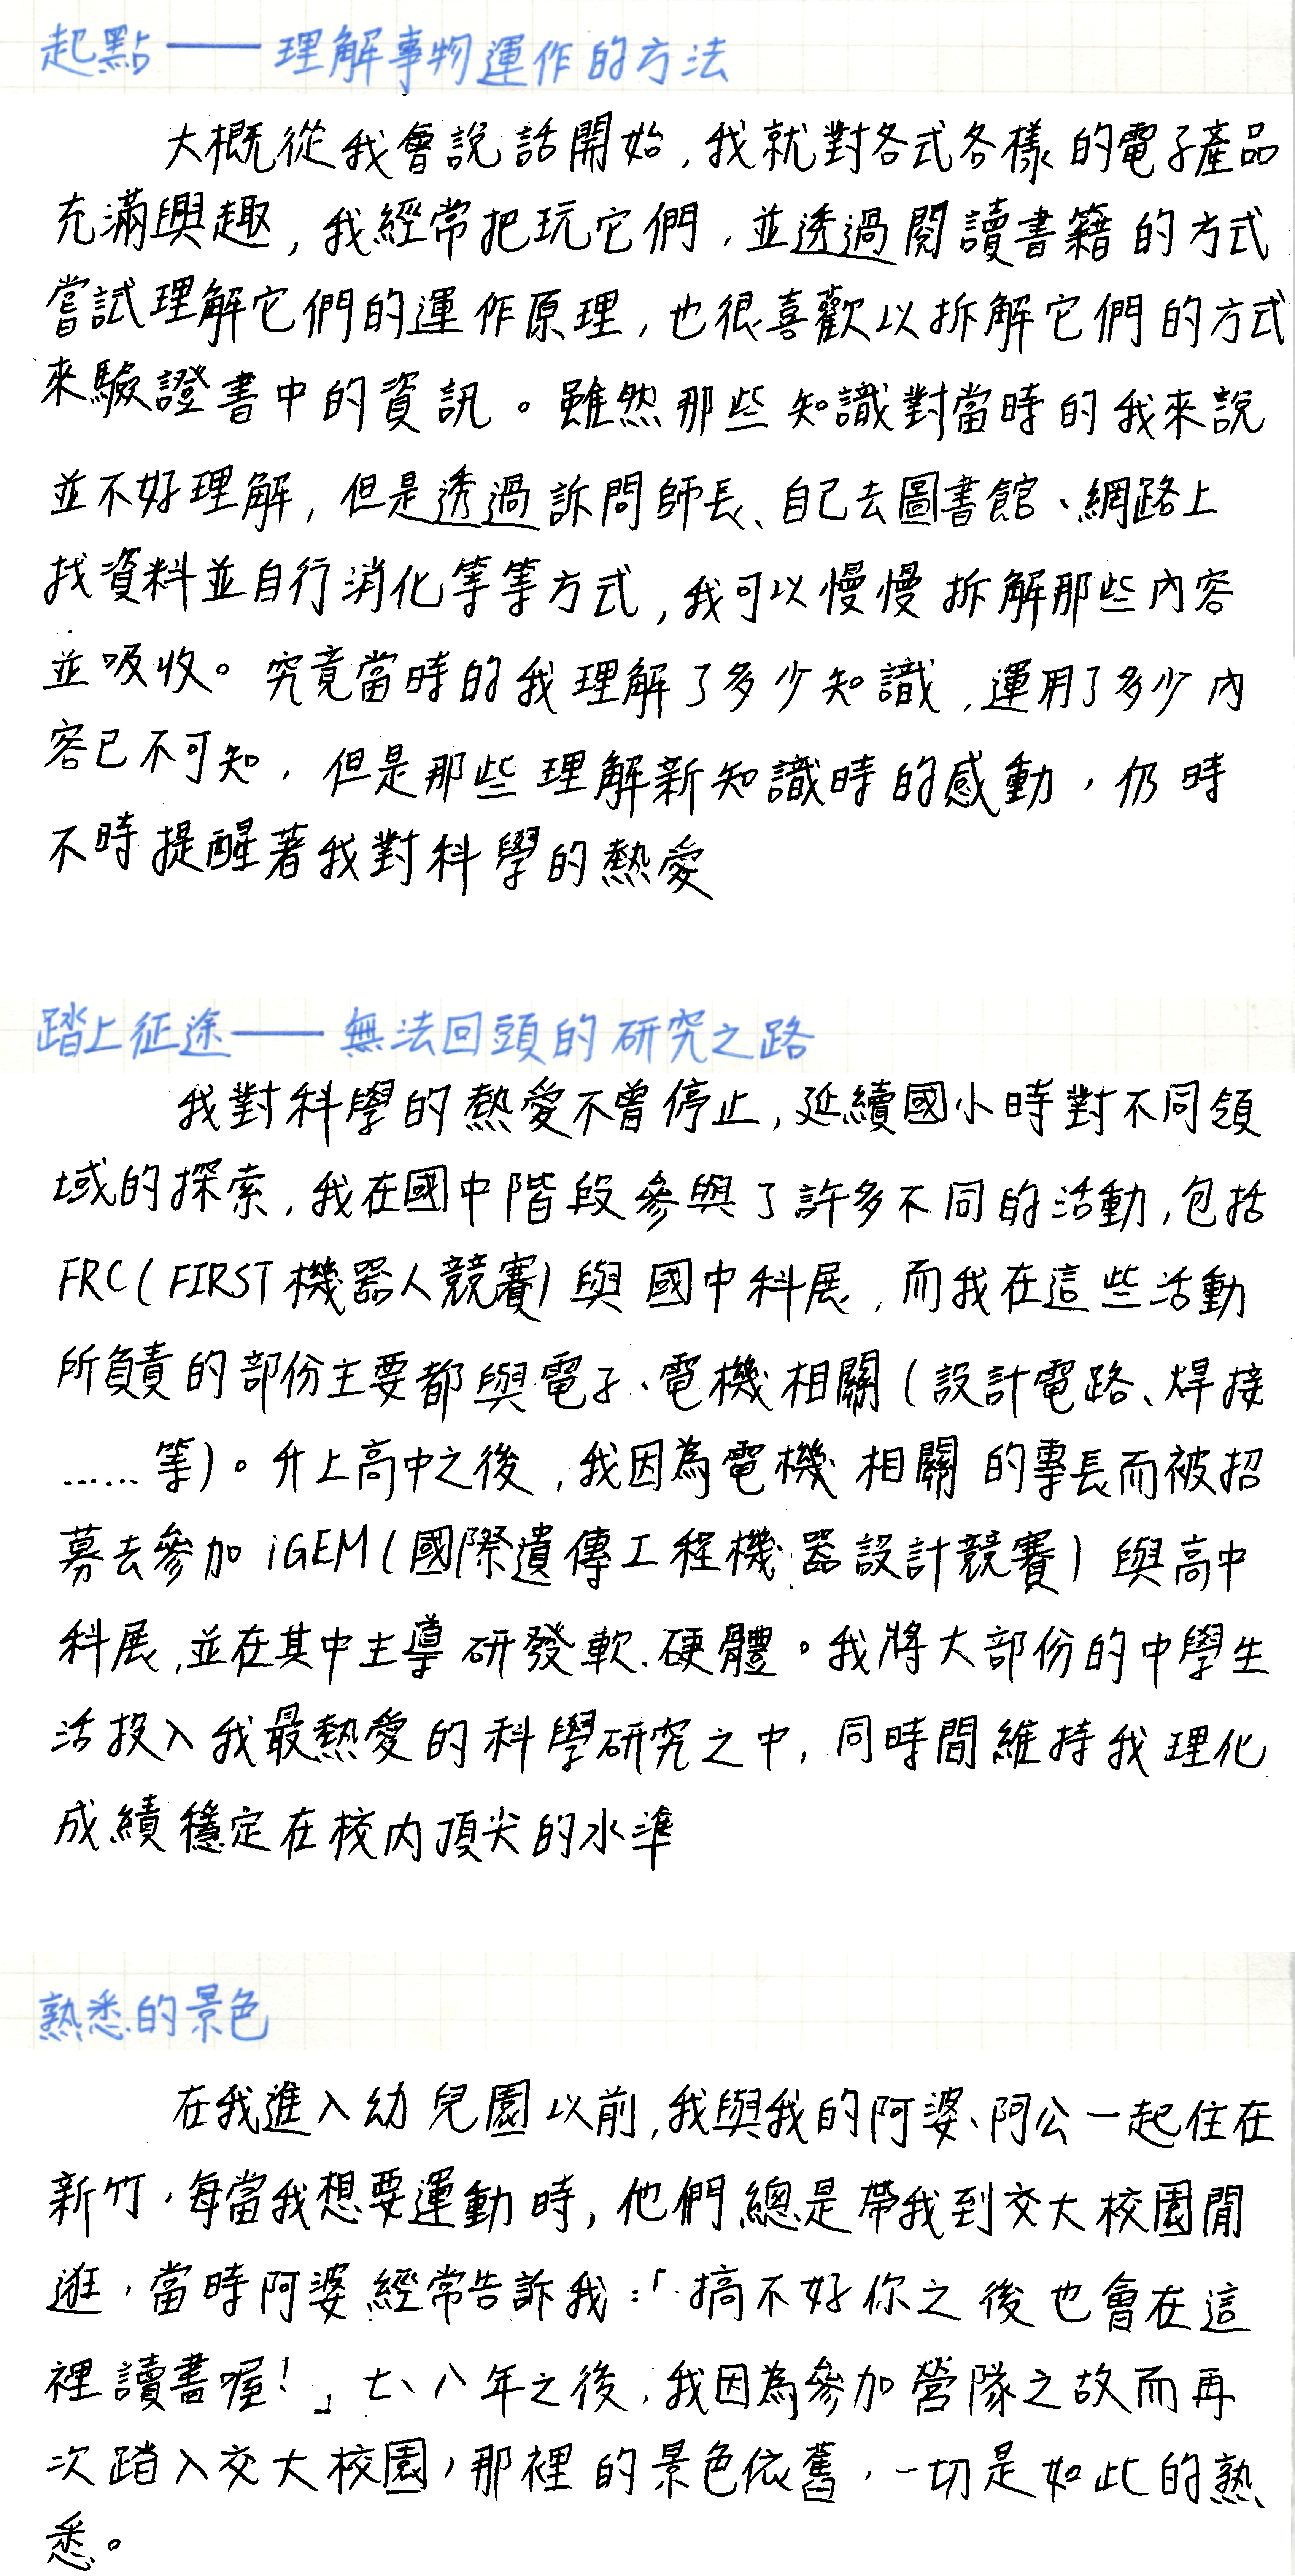 起點——理解事物運作的方法
大概從我會說話開始,我就對各式各樣的電子產品
充滿興趣,我經常把玩它們,並透過閱讀書籍的方式
嘗試理解它們的運作原理,也很喜歡以拆解它們的方式
來驗證書中的資訊。雖然那些知識對當時的我來說
並不好理解,但是透過訴問師長、自己去圖書館、網路上
找資料並自行消化等等方式,我可以慢慢拆解那些內容
並吸收。究竟當時的我理解了多少知識,運用了多少內
容已不可知,但是那些理解新知識時的感動,仍時
不時提醒著我對科學的熱愛
踏上征途——無法回頭的研究之路
我對科學的熱愛不曾停止,延續國小時對不同領
域的探索,我在國中階段參與了許多不同的活動,包括
FRC(FIRST機器人競賽)與國中科展,而我在這些活動
所負責的部份主要都與電子、電機相關(設計電路、焊接
……等)。升上高中之後,我因為電機相關的專長而被招
募去參加iGEM(國際遺傳工程機器設計競賽)與高中
科展,並在其中主導研發軟、硬體。我將大部份的中學生
活投入我最熱愛的科學研究之中,同時間維持我理化
成績穩定在校內頂尖的水準
熟悉的景色
在我進入幼兒園以前,我與我的阿婆、阿公一起住在
新竹,每當我想要運動時,他們總是帶我到交大校園閒
逛,當時阿婆經常告訴我:「搞不好你之後也會在這
裡讀書喔!」七、八年之後,我因為參加營隊之故而再
次踏入交大校園,那裡的景色依舊,一切是如此的熟
悉。